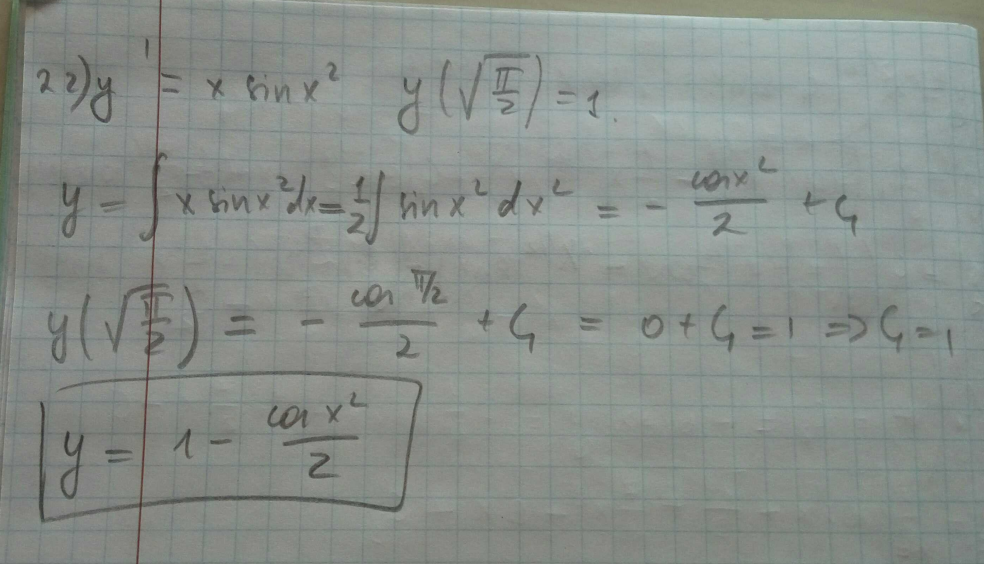 22) y' = x sin x² y(√(π/2)) = 1.
y = ∫ x sin x² dx = 1/2 ∫ sin x² dx² = - cos x²/2 + C₁
y(√(π/2)) = - cos π/2 / 2 + C₁ = 0 + C₁ = 1 ⇒ C₁ = 1
y = 1 - cos x²/2